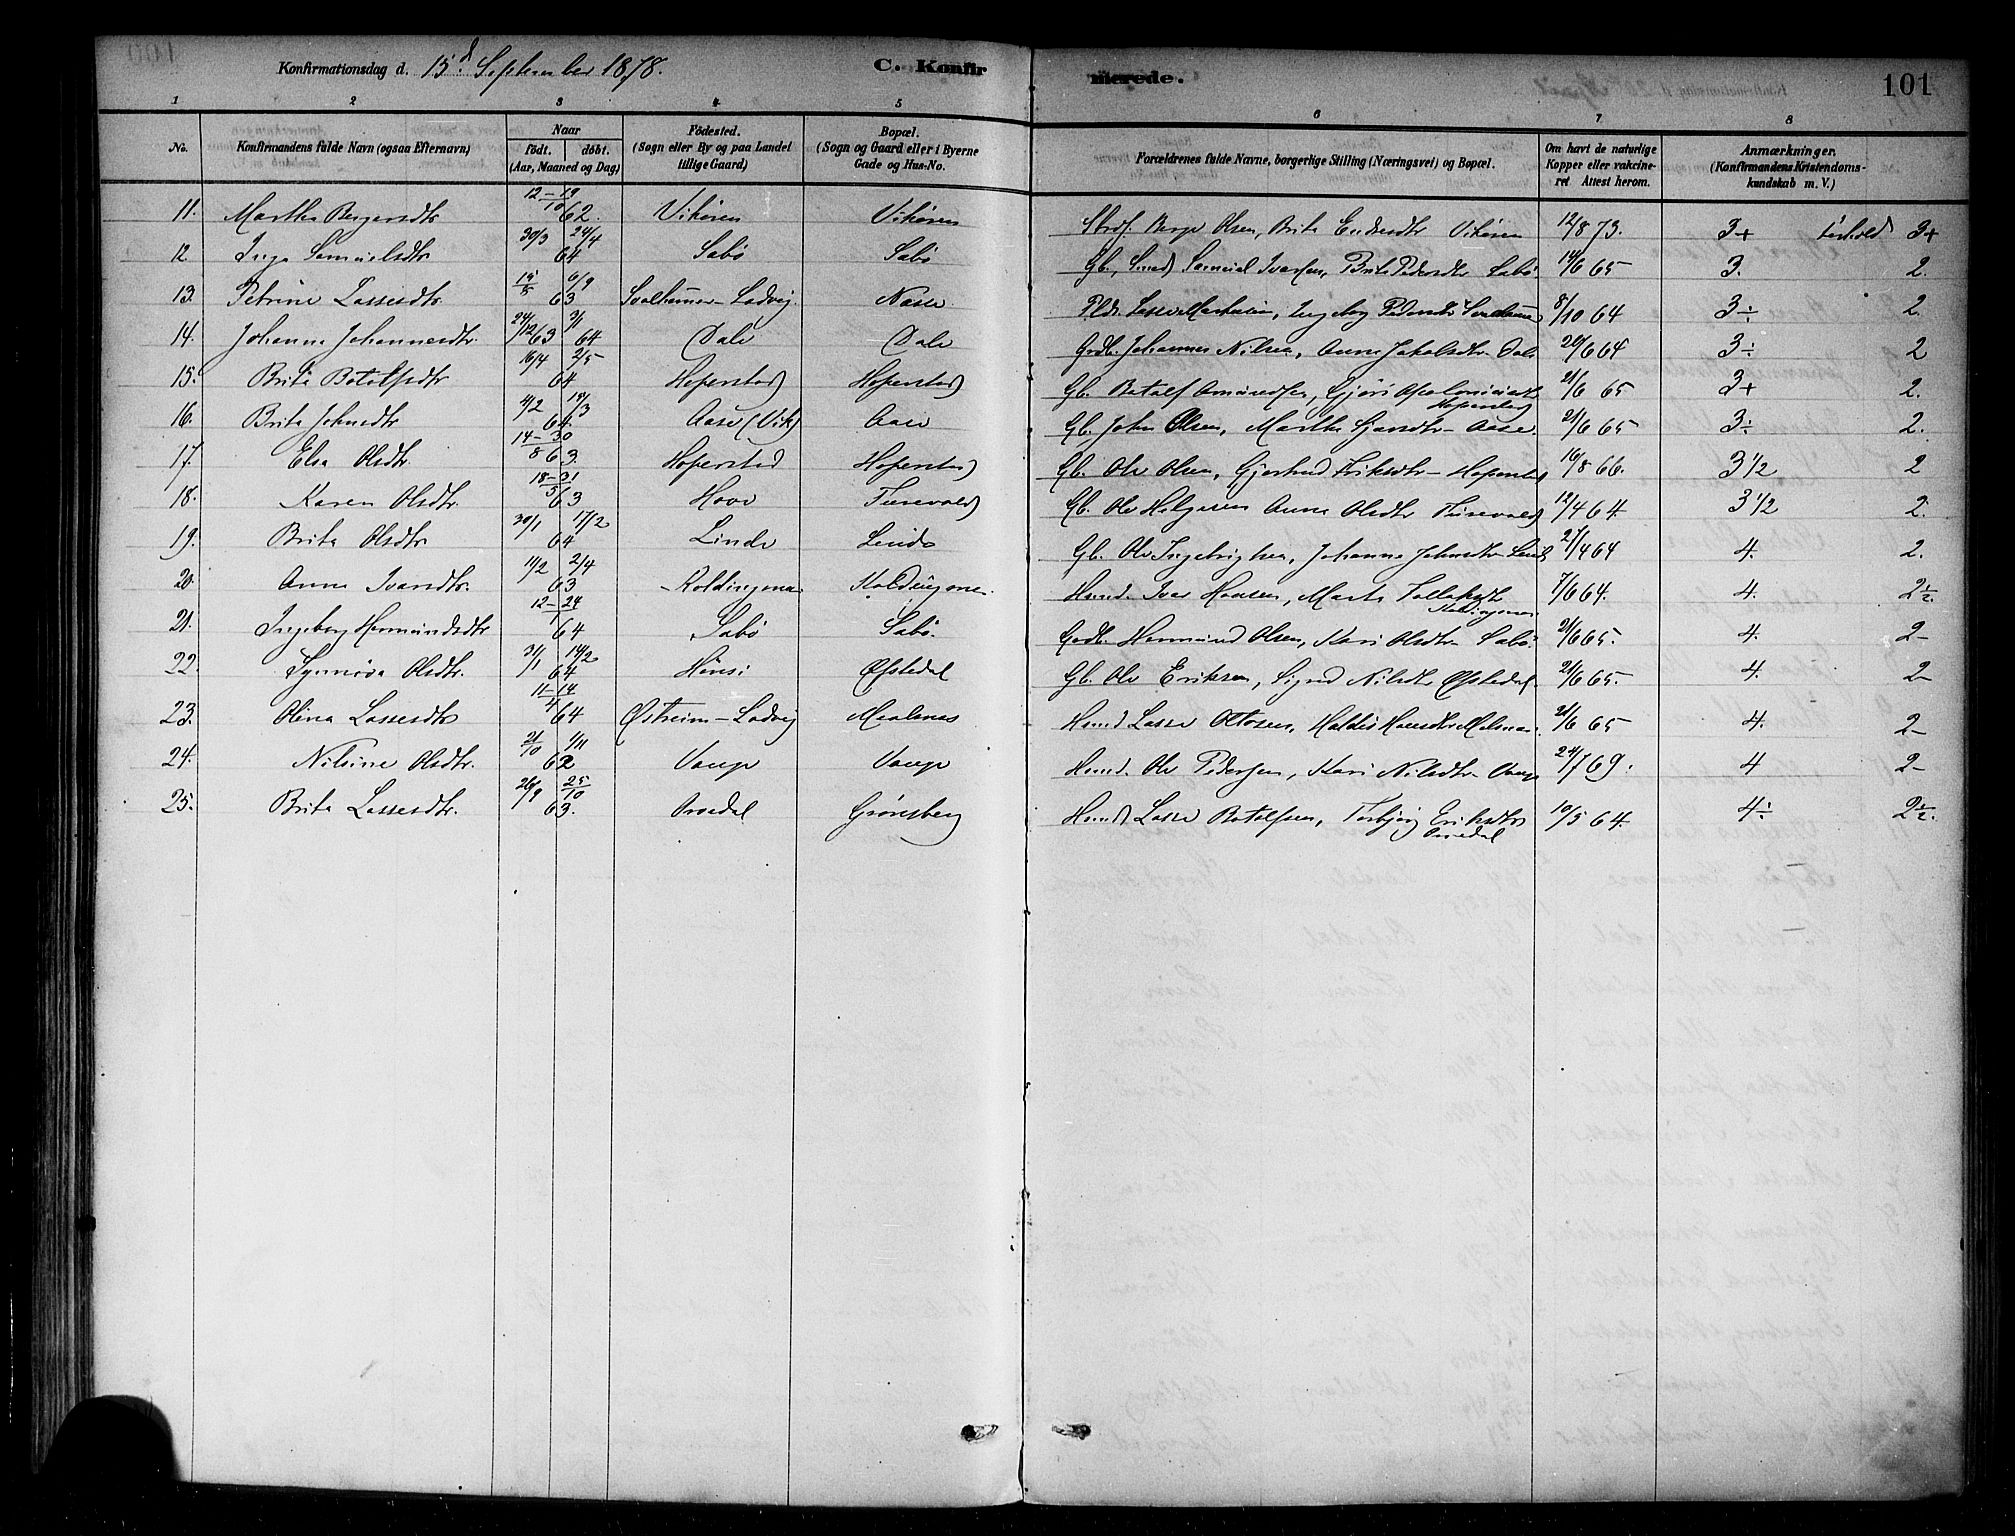 Konfirmationsdag d. 15d September 1878. C. Konfirmerede. 101
1 2 3 4 5 6 7 8
No. Konfirmandens fulde Navn (ogsaa Efternavn) Naar Födt. döbt. (Aar, Maaned og Dag) Födested. (Sogn eller By og paa Landet tillige Gaard) Bopæl. (Sogn og Gaard eller i Byerne Gade og Hus-No. Forældrenes fulde Navne, borgerlige Stilling (Næringsvei) og Bopæl. Om havt de naturlige Kopper eller vakcineret Attest herom. Anmærkninger. (Konfirmandens Kristendomskundskab m. V.)
11. Martha Bergersdtr 12-19/10 62. Vikören Vikören Berge Olsen, Brita Endresdtr Vikören 12/8 73. 3+ 3+
12 Inga Samuelsdtr 30/3 24/4 64 Sabö Sabö Gb., Smed Samuel Ivarsen, Brita Pedersdtr Sabö 14/6 65 3. 2.
13. Petrine Lassesdtr. 15/8 6/9 63 Ladvig. Nase 8/10 64 3÷ 2.
14. Johanna Johannesdtr. 24/12 63 3/1 64 Dale Dale Grdb. Johannes Nilsen, Anna Jakobsdtr. Dale 20/6 64 3÷ 2
15. Brita Botolfsdtr 16/4 2/5 64 Hoperstad Hoperstad Gb. Botolf Amundsen, Gjöri Hoperstad 21/6 65 3+ 2.
16. Brita Johnsdtr 11/2 13/3 64. Aase (Vik) Aase Gb. John Olsen, Martha Aase. 21/6 65 3÷ 2.
17. Elsa Olsdtr. 14-30/8 63. Hoperstad Hoperstad Gb. Ole Olsen, Gjertrud Eriksdtr Hoperstad 16/8 66. 3 1/2 2
18. Karen Olsdtr. 18-31/5 63 Hove Turevold Gb. Ole Helgesen Anna Olsdtr Turevold 12/4 64. 3 1/2 2.
19. Brita Olsdtr 30/1 17/2 64 Linde Linde Gb. Ole Ingebrigtsen, Johanna Johnsdtr Linde 27/4 64 4. 2.
20. Anna Ivarsdtr. 11/2 2/4 63 Koldingnæs Koldingnæs. Husmd. Ivar Hansen, Marta 7/6 64. 4. 2 1/2.
21. Ingeborg Hermundsdtr 12-24/1 64 Sabö Sabö. Grdb. Hermund Olsen, Kari Olsdtr Sabö. 21/6 65. 4. 2-
22. Synnöva Olsdtr. 31/1 14/2 64 Hönsi Öfstedal Gb. Ole Eriksen, Sigrid Nilsdtr Öfstedal. 21/6 65. 4. 2-
23. Olina Lassesdtr 11-14/4 64 Östreim - Ladvig Maalsnæs Husmd Lasse Ottosen, Haldis Hansdtr 21/6 65 4. 2-
24. Nilsine Olsdtr. 21/10 1/11 62 Vange Vange Husmd. Ole Pedersen, Kari Nilsdtr Vange 24/7 69. 4 2-
25. Brita Lassesdtr. 26/9 25/10 63. Ovredal Grönsberg Husmd Lasse Botolfsen, Torbjörg Eriksdtr Ovredal 10/5 64. 4÷ 2 1/2.